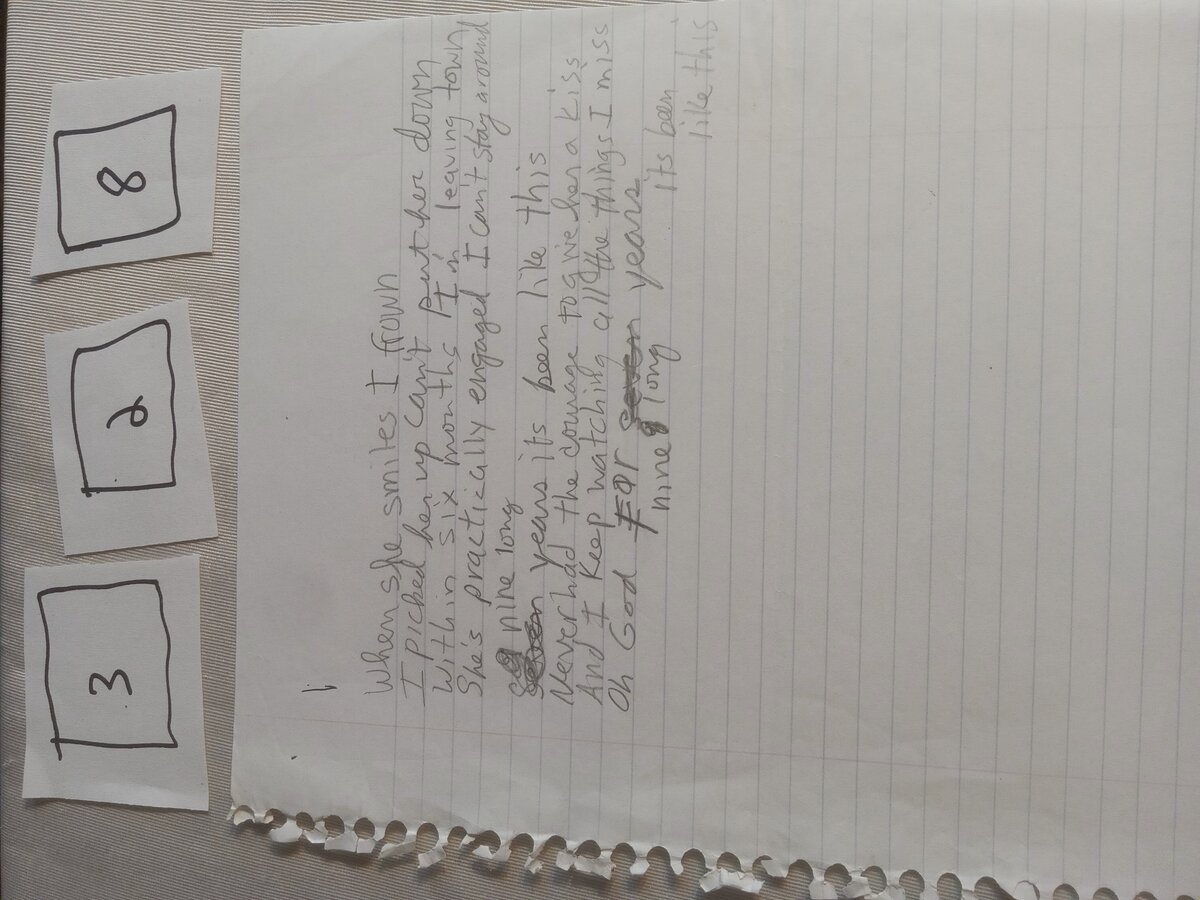 3 2 8
When she smiles I frown
I picked her up can't put her down
With in six months I'm leaving town
She's practically engaged I can't stay around
nine long
years its been like this
Never had the courage to give her a kiss
And I keep watching all the things I miss
Oh God FOR years
nine long its been
like this